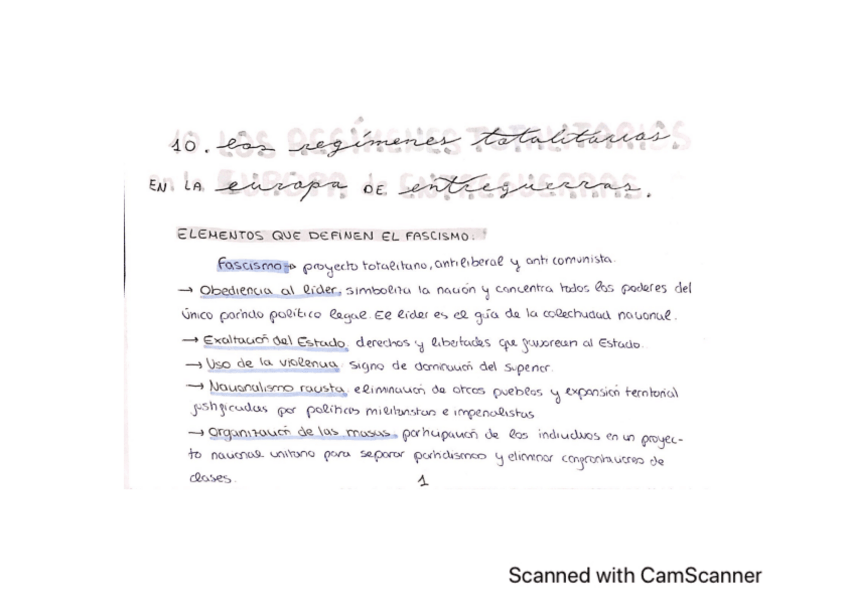 10. los regímenes totalitarios
EN LA europa DE entreguerras.
ELEMENTOS QUE DEFINEN EL FASCISMO.
Fascismo → proyecto totalitario, antiliberal y anticomunista.
→ Obediencia al líder, simboliza la nación y concentra todos los poderes del
único partido político legal. El líder es el guía de la colectividad nacional.
→ Exaltación del Estado, derechos y libertades que favorecen al Estado.
→ Uso de la violencia, signo de dominación del superior.
→ Nacionalismo racista, eliminación de otros pueblos y expansión territorial
justificadas por políticas militaristas e imperialistas
→ Organización de las masas, participación de los individuos en un proyec-
to nacional unitario para separar partidismos y eliminar confrontaciones de
clases.
1
Scanned with CamScanner